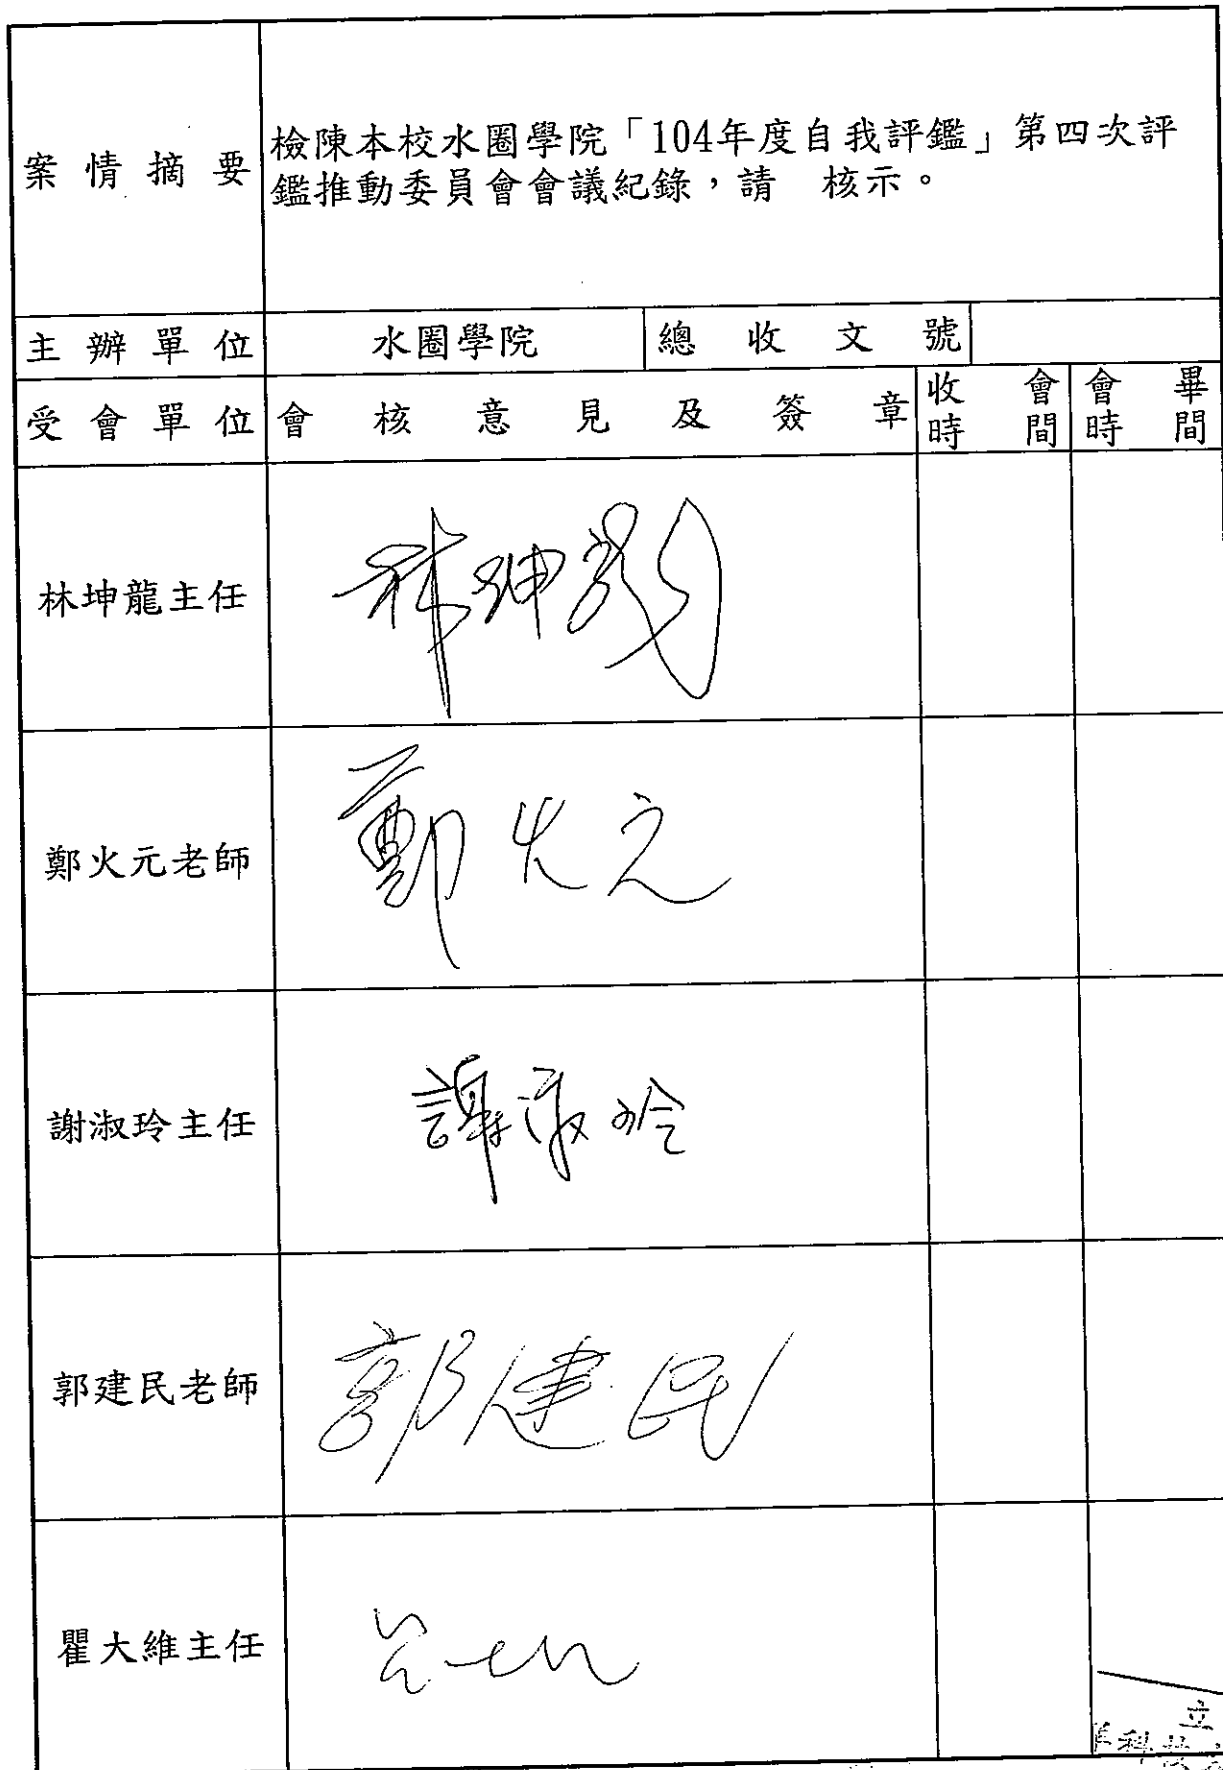 案情摘要
檢陳本校水圈學院「104年度自我評鑑」第四次評
鑑推動委員會會議紀錄，請　核示。
主辦單位 水圈學院 總收文號
受會單位 會核意見及簽章 收會時間 會畢時間
林坤龍主任 林坤龍
鄭火元老師 鄭火元
謝淑玲主任 謝淑玲
郭建民老師 郭建民
瞿大維主任
立
科技